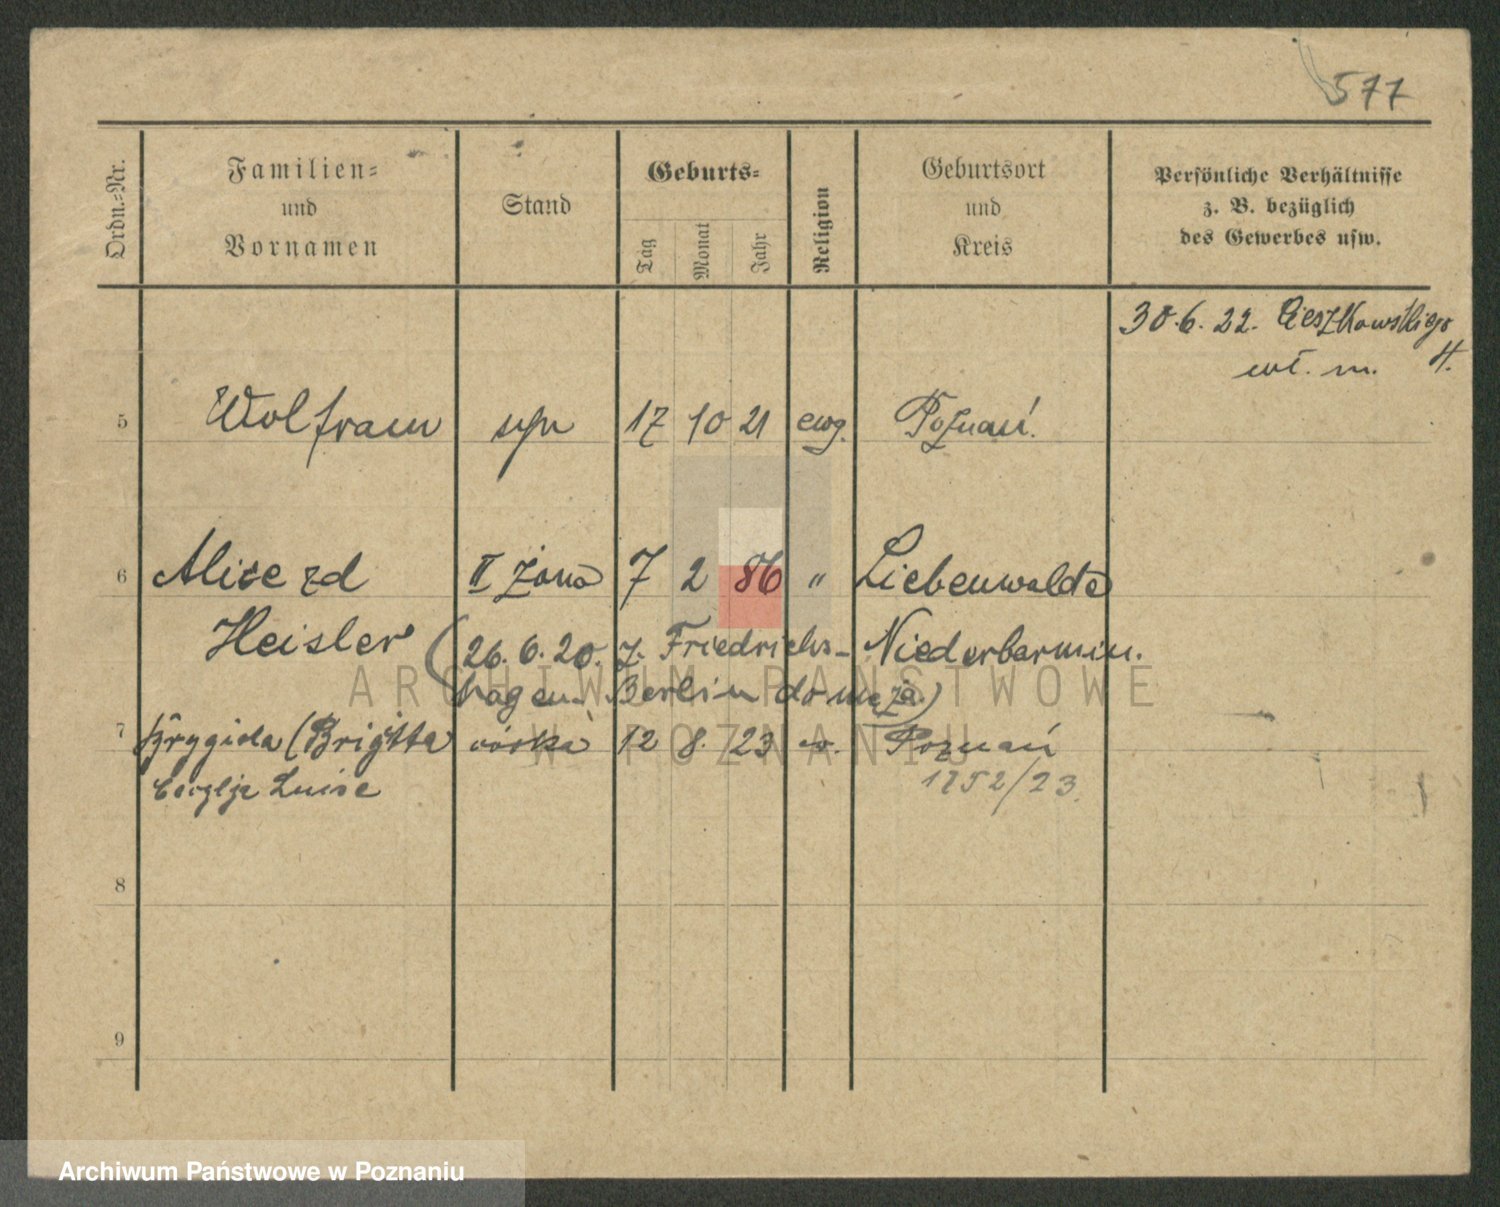 577
Ordn.-Nr.
Familien-
und
Vornamen
Stand
Geburts-
Tag
Monat
Jahr
Religion
Geburtsort
und
Kreis
Persönliche Verhältnisse
z. B. bezüglich
des Gewerbes usw.
30.6.22. Cieszkowskiego
wł. m. 4.
5 Wolfram syn 17 10 21 ewg. Poznań.
6 Alice zd II żona 7 2 86 " Liebenwalde
Heisler (26.6.20. z. Friedrichs- Niederbarnim.
hagen. Berlin do męża)
7 Brygida (Brigitta córka 12 8. 23 ew. Poznań
Luise 1752/23.
8
9
ARCHIWUM PAŃSTWOWE
W POZNANIU
Archiwum Państwowe w Poznaniu